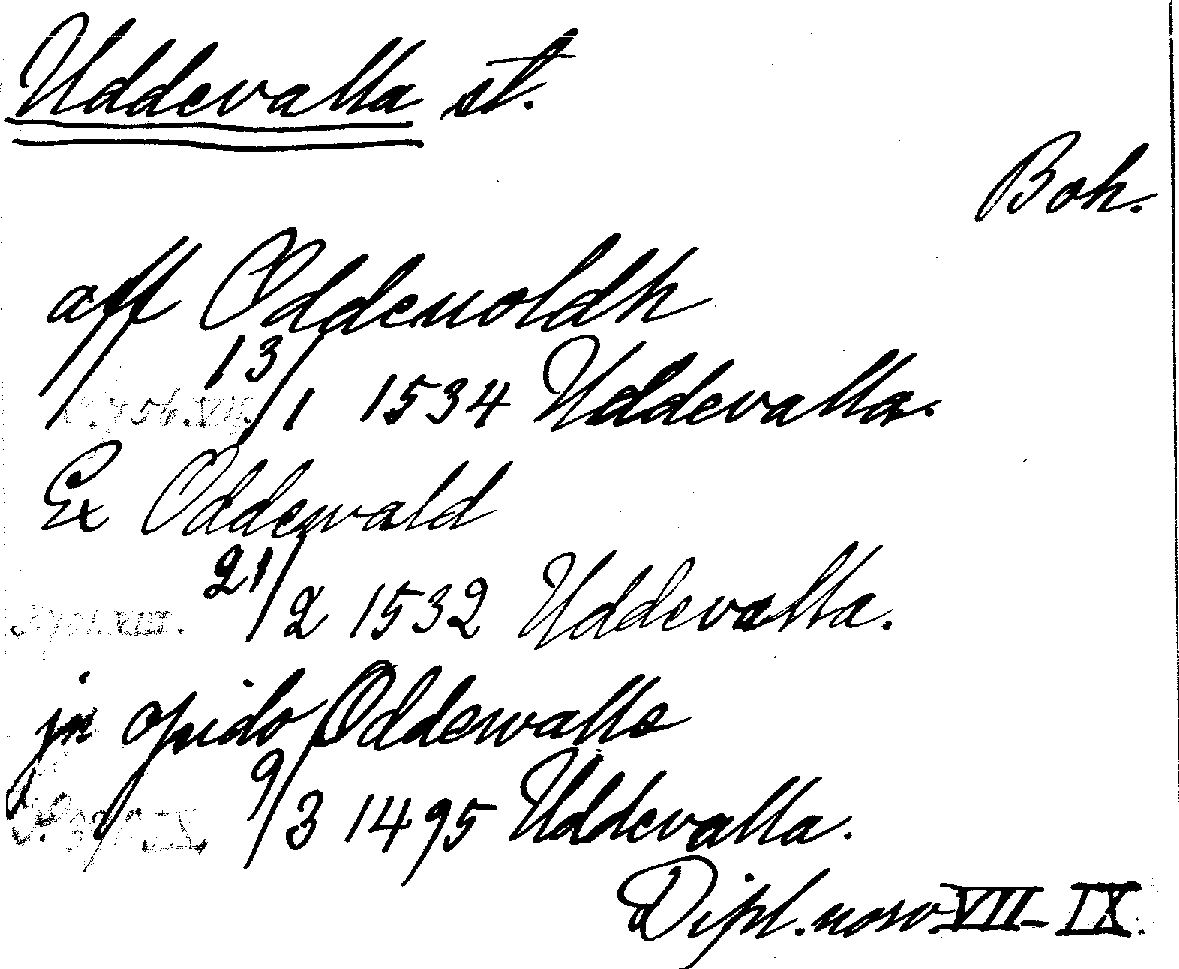 Uddevalla st.
Boh.
aff Oddeuoldh
13/1 1534 Uddevalla.
Ex Oddewald
21/2 1532 Uddevalla.
jn opido Oddewalle
9/3 1495 Uddevalla.
Dipl. norv VII-IX.